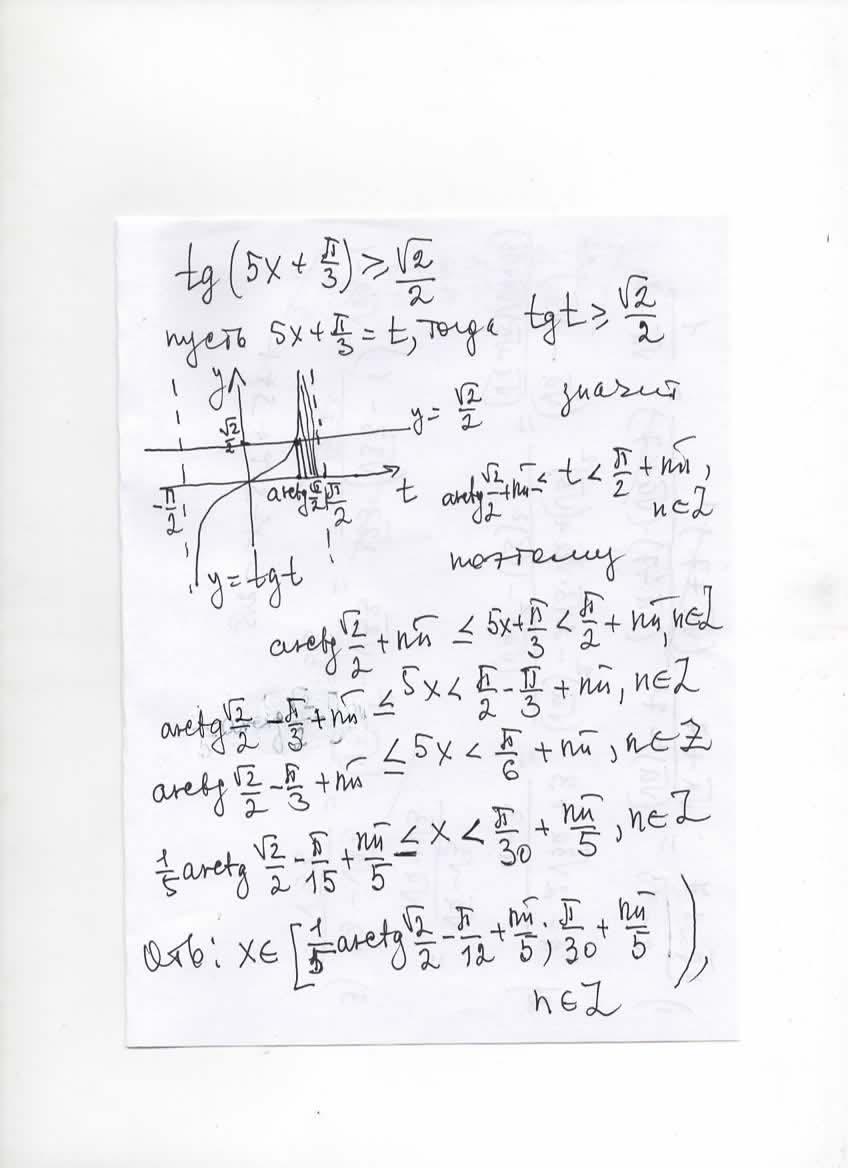 tg(5x + π/3) ≥ √2/2
пусть 5x + π/3 = t, тогда tg t ≥ √2/2
y
√2/2
y = √2/2
-π/2
arctg √2/2
π/2
t
y = tg t
значит
arctg √2/2 + πn ≤ t < π/2 + πn,
n ∈ Z
поэтому
arctg √2/2 + πn ≤ 5x + π/3 < π/2 + πn, n ∈ Z
arctg √2/2 - π/3 + πn ≤ 5x < π/2 - π/3 + πn, n ∈ Z
arctg √2/2 - π/3 + πn ≤ 5x < π/6 + πn, n ∈ Z
1/5 arctg √2/2 - π/15 + πn/5 ≤ x < π/30 + πn/5, n ∈ Z
Отв: x ∈ [1/5 arctg √2/2 - π/12 + πn/5; π/30 + πn/5),
n ∈ Z